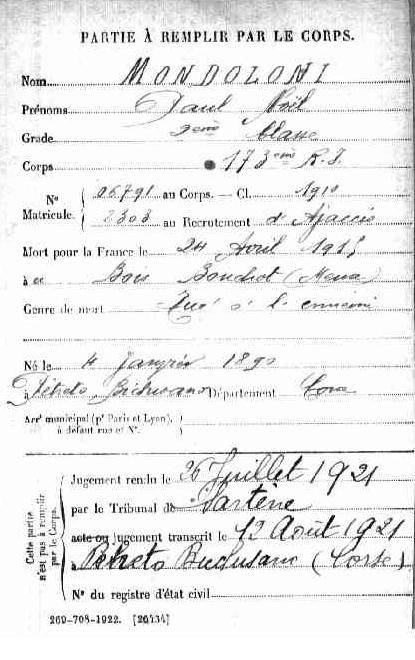 PARTIE À REMPLIR PAR LE CORPS.
Nom MONDOLONI
Prénoms Paul Noël
Grade 2eme classe
Corps 173eme R.I.
N° Matricule. 06791 au Corps. — Cl. 1910
2303 au Recrutement d'Ajaccio
Mort pour la France le 24 Avril 1915
à Bois Bouchot (Meuse
Genre de mort Tué à l'ennemi
Né le 4 Janvier 1890
à Pétreto Bicchisano Département Corse
Arrt municipal (pr Paris et Lyon),
à défaut rue et N°.
Cette partie n'est pas à remplir par le Corps.
Jugement rendu le 26 Juillet 1921
par le Tribunal de Sartène
acte ou jugement transcrit le 12 Août 1921
à Pétreto Bicchisano (Corse)
N° du registre d'état civil
269-708-1922. [26434]